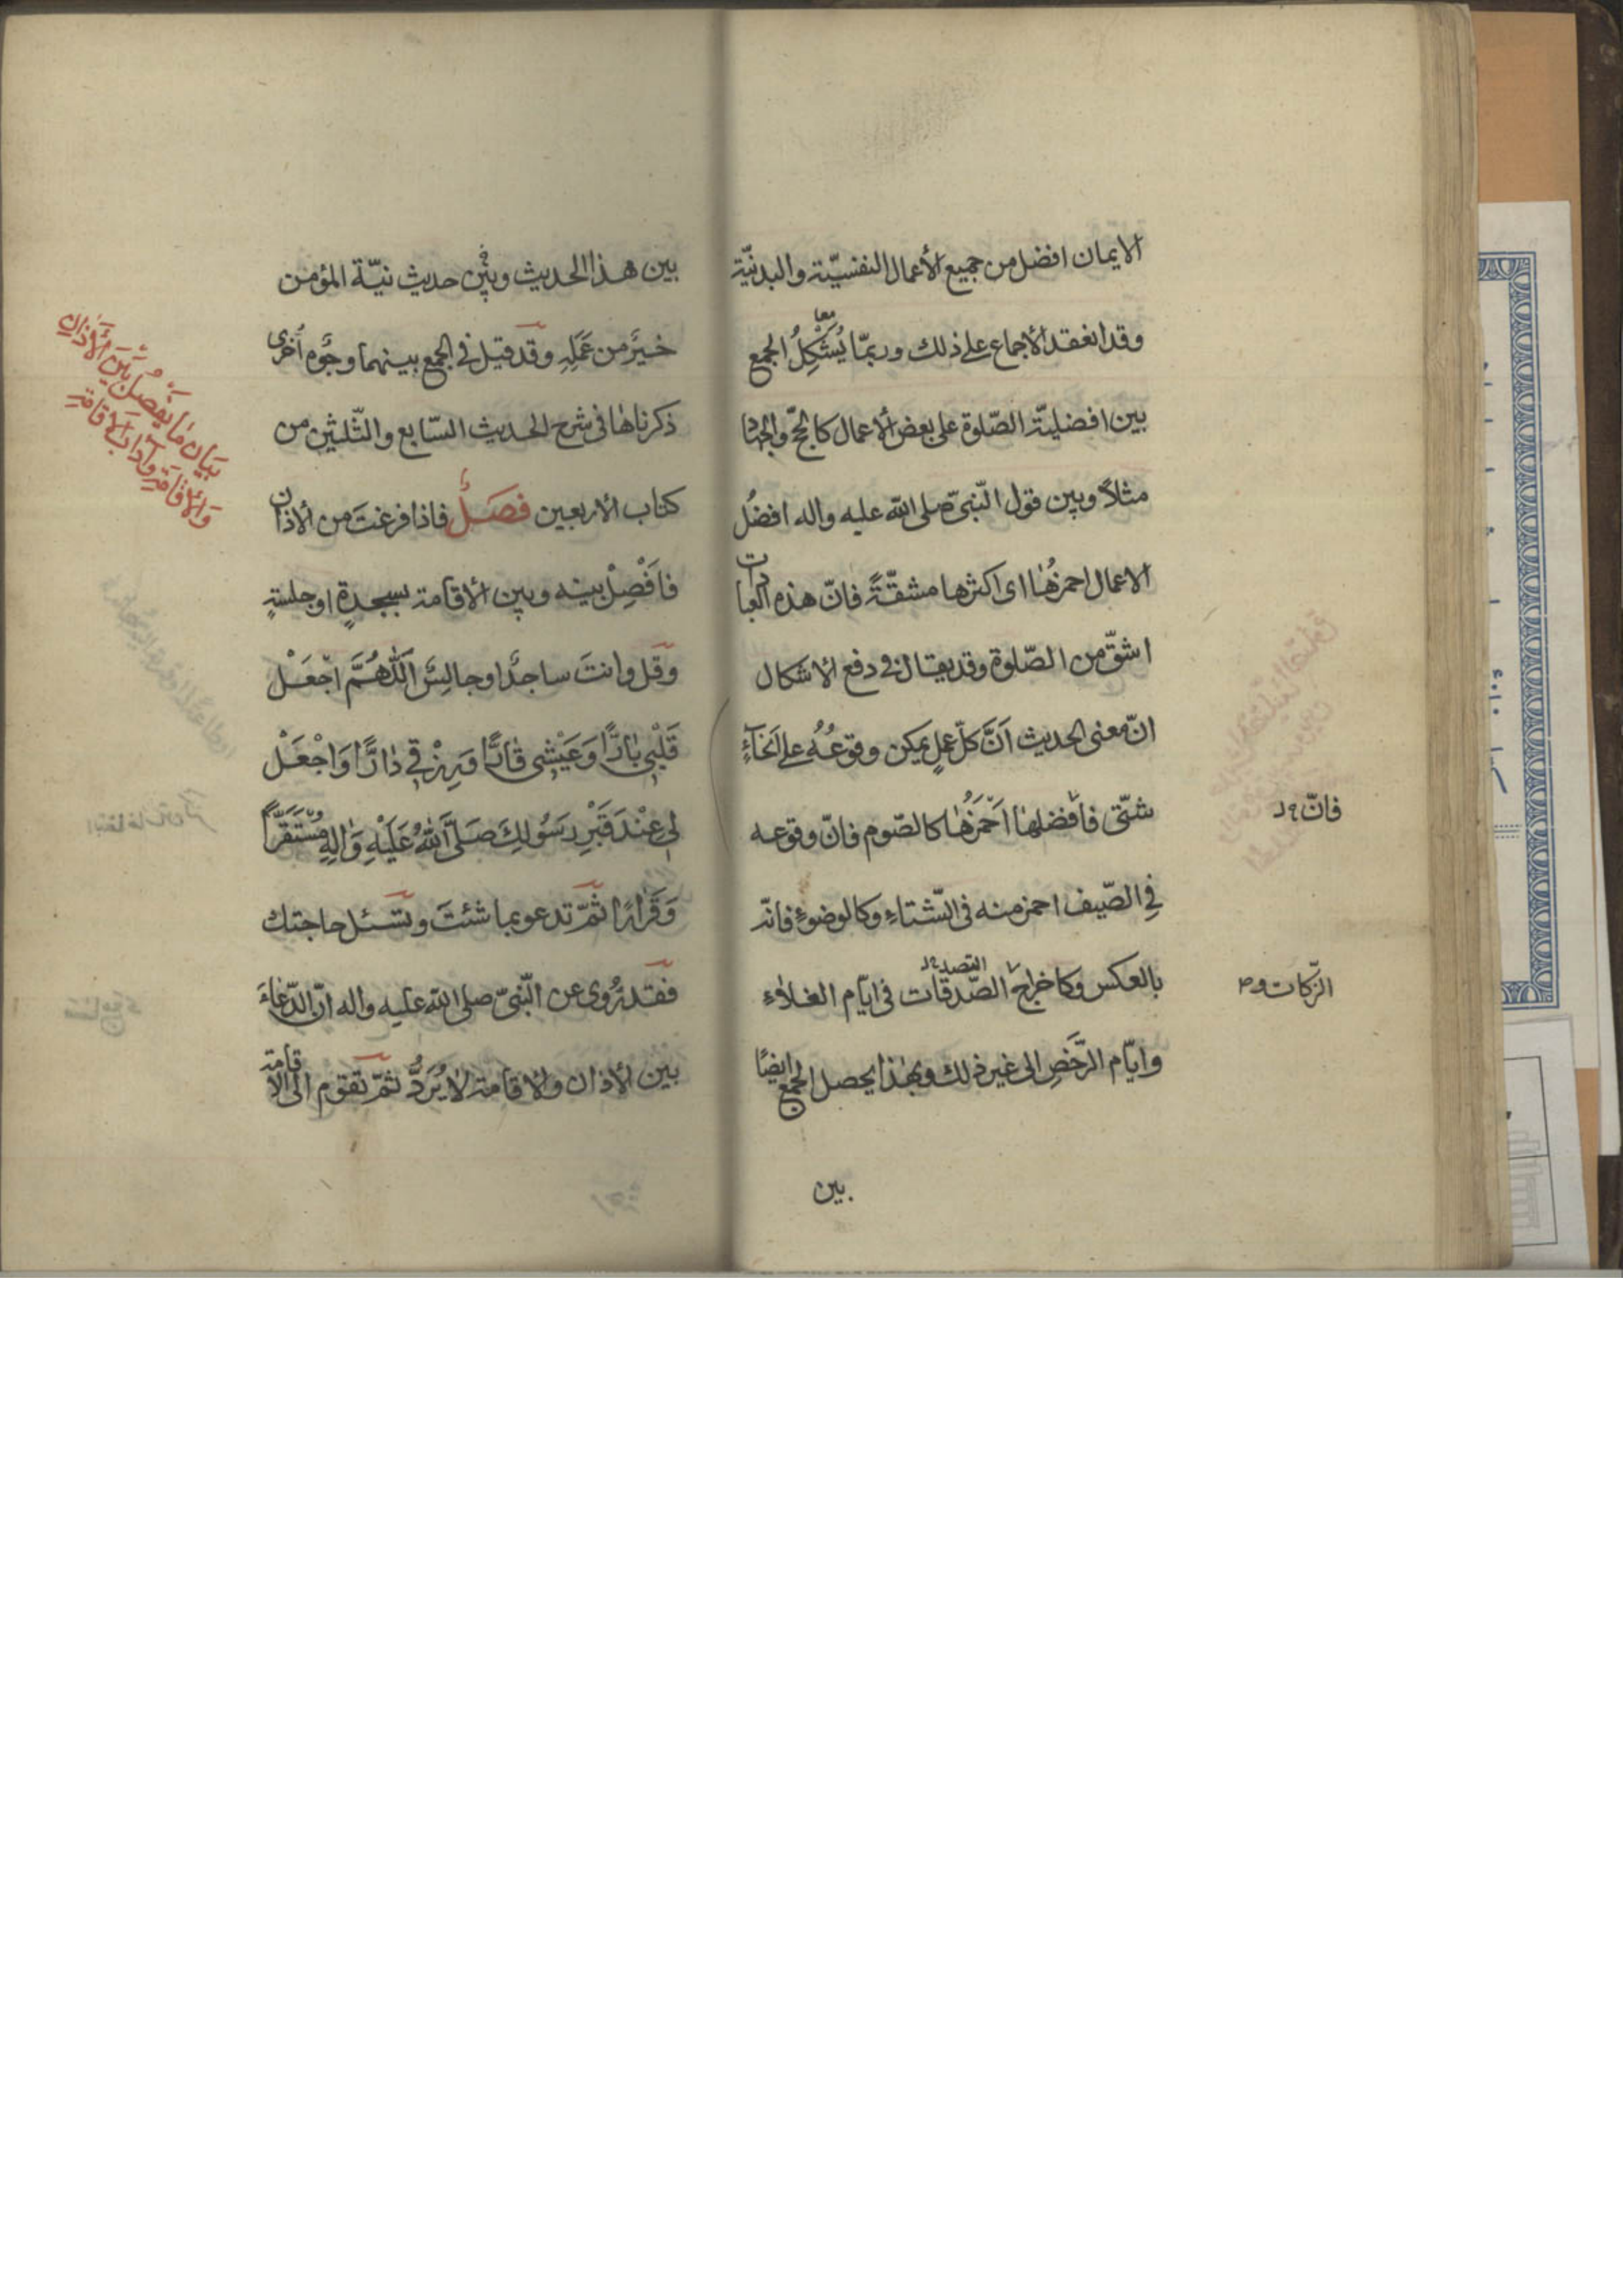 الايمان افضل من جميع الأعمال النفسيّة والبدنيّة
وقد انعقد الأجماع على ذلك وربمّا يُشْكِلُ الجمع
معا
بين افضليّة الصّلوة على بعض الأعمال كالحجّ والجهاد
مثلاً وبين قول النّبىّ صلى الله عليه واله افضلُ
الاعمال احمزُهٰا اى اكثرها مشقّةً فانّ هذه العبادات
اشقّ من الصّلوة وقد يقال فى دفع الأشكال
انّ معنى الحديث اَنَّ كلّ عملٍ يمكن وقوعُهُ على اَنحآءٍ
شتّى فافضلهٰا اَحْمَزُهٰا كالصّوم فانّ وقوعه
فانّ
فِى الصّيف احمز منه فى الشّتاءِ وكالوضوءِ فانّه
بالعكس وكاخراج الصّدقات فى ايّام الغلاءِ
التصد
الزّكات و
وايّام الرَّخَصِ الى غير ذلك وبهٰذا يحصل الجمع ايضًا
بين
بين هذا الحديث وبين حديث نيّة المؤمن
خيرٌ من عَمَلِهِ وقد قيل فى الجمع بينهما وجوه اُخرى
ذكرناهٰا فى شرح الحديث السّابع والثّلثين من
كتاب الأربعين فصَلٌ فاذا فرغتَ من الأذان
فاَفْصِلْ بينه وبين الأقامة بسجدةٍ او جلسةٍ
وقل وانتَ ساجدًا او جالسً اَللّٰهُمَّ اجْعَلْ
قَلْبِى بٰارًّا وَعَيْشِى قٰارًّا وَرِزْقِى دٰارًّا وَاجْعَلْ
لِى عِنْدَ قَبْرِ رَسُولِكَ صَلَّى اللهُ عَلَيْهِ وَاٰلِهِ مُسْتَقَرًّا
وَقَرٰارًا ثمّ تدعو بما شئتَ وتسئل حاجتك
فقد رُوى عن النّبىّ صلى الله عليه واله انّ الدّعٰاءَ
بين الأذان والأقامة لٰا يُرَدُّ ثمّ تقوم الى الأقامة
بَيٰان مٰا يَفْصُلُ بَيْنَ الْأَذٰانِ
وَالْأِقٰامَةِ وَآدٰاب الْأِقٰامَةِ